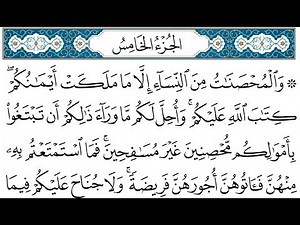 الجزء الخامس
۞ وَٱلۡمُحۡصَنَٰتُ مِنَ ٱلنِّسَآءِ إِلَّا مَا مَلَكَتۡ أَيۡمَٰنُكُمۡۖ
كِتَٰبَ ٱللَّهِ عَلَيۡكُمۡۚ وَأُحِلَّ لَكُم مَّا وَرَآءَ ذَٰلِكُمۡ أَن تَبۡتَغُواْ
بِأَمۡوَٰلِكُم مُّحۡصِنِينَ غَيۡرَ مُسَٰفِحِينَۚ فَمَا ٱسۡتَمۡتَعۡتُم بِهِۦ
مِنۡهُنَّ فَـَٔاتُوهُنَّ أُجُورَهُنَّ فَرِيضَةٗۚ وَلَا جُنَاحَ عَلَيۡكُمۡ فِيمَا